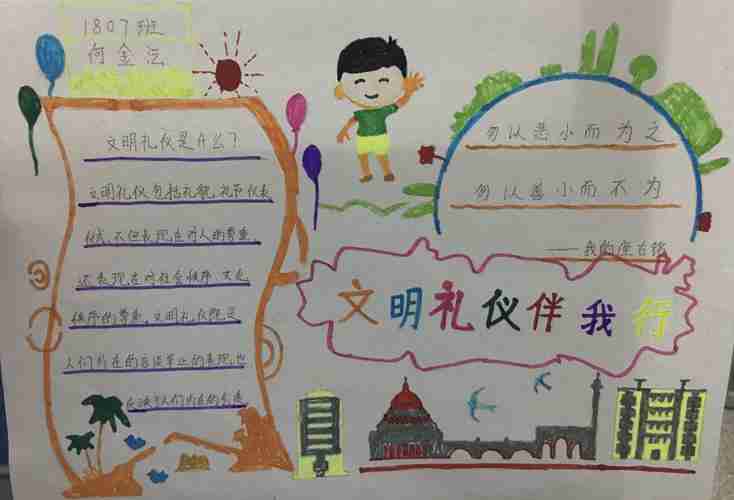 1807班
何金法
文明礼仪是什么?
文明礼仪包括礼貌、礼节、仪表
仪式,不但表现在对人的尊重,
还表现在对社会秩序、文
秩序的尊重,文明礼仪既是
人们外在的言谈举止的表现,也
反映了人们内在的
勿以恶小而为之
勿以善小而不为
——我的座右铭
文明礼仪伴我行